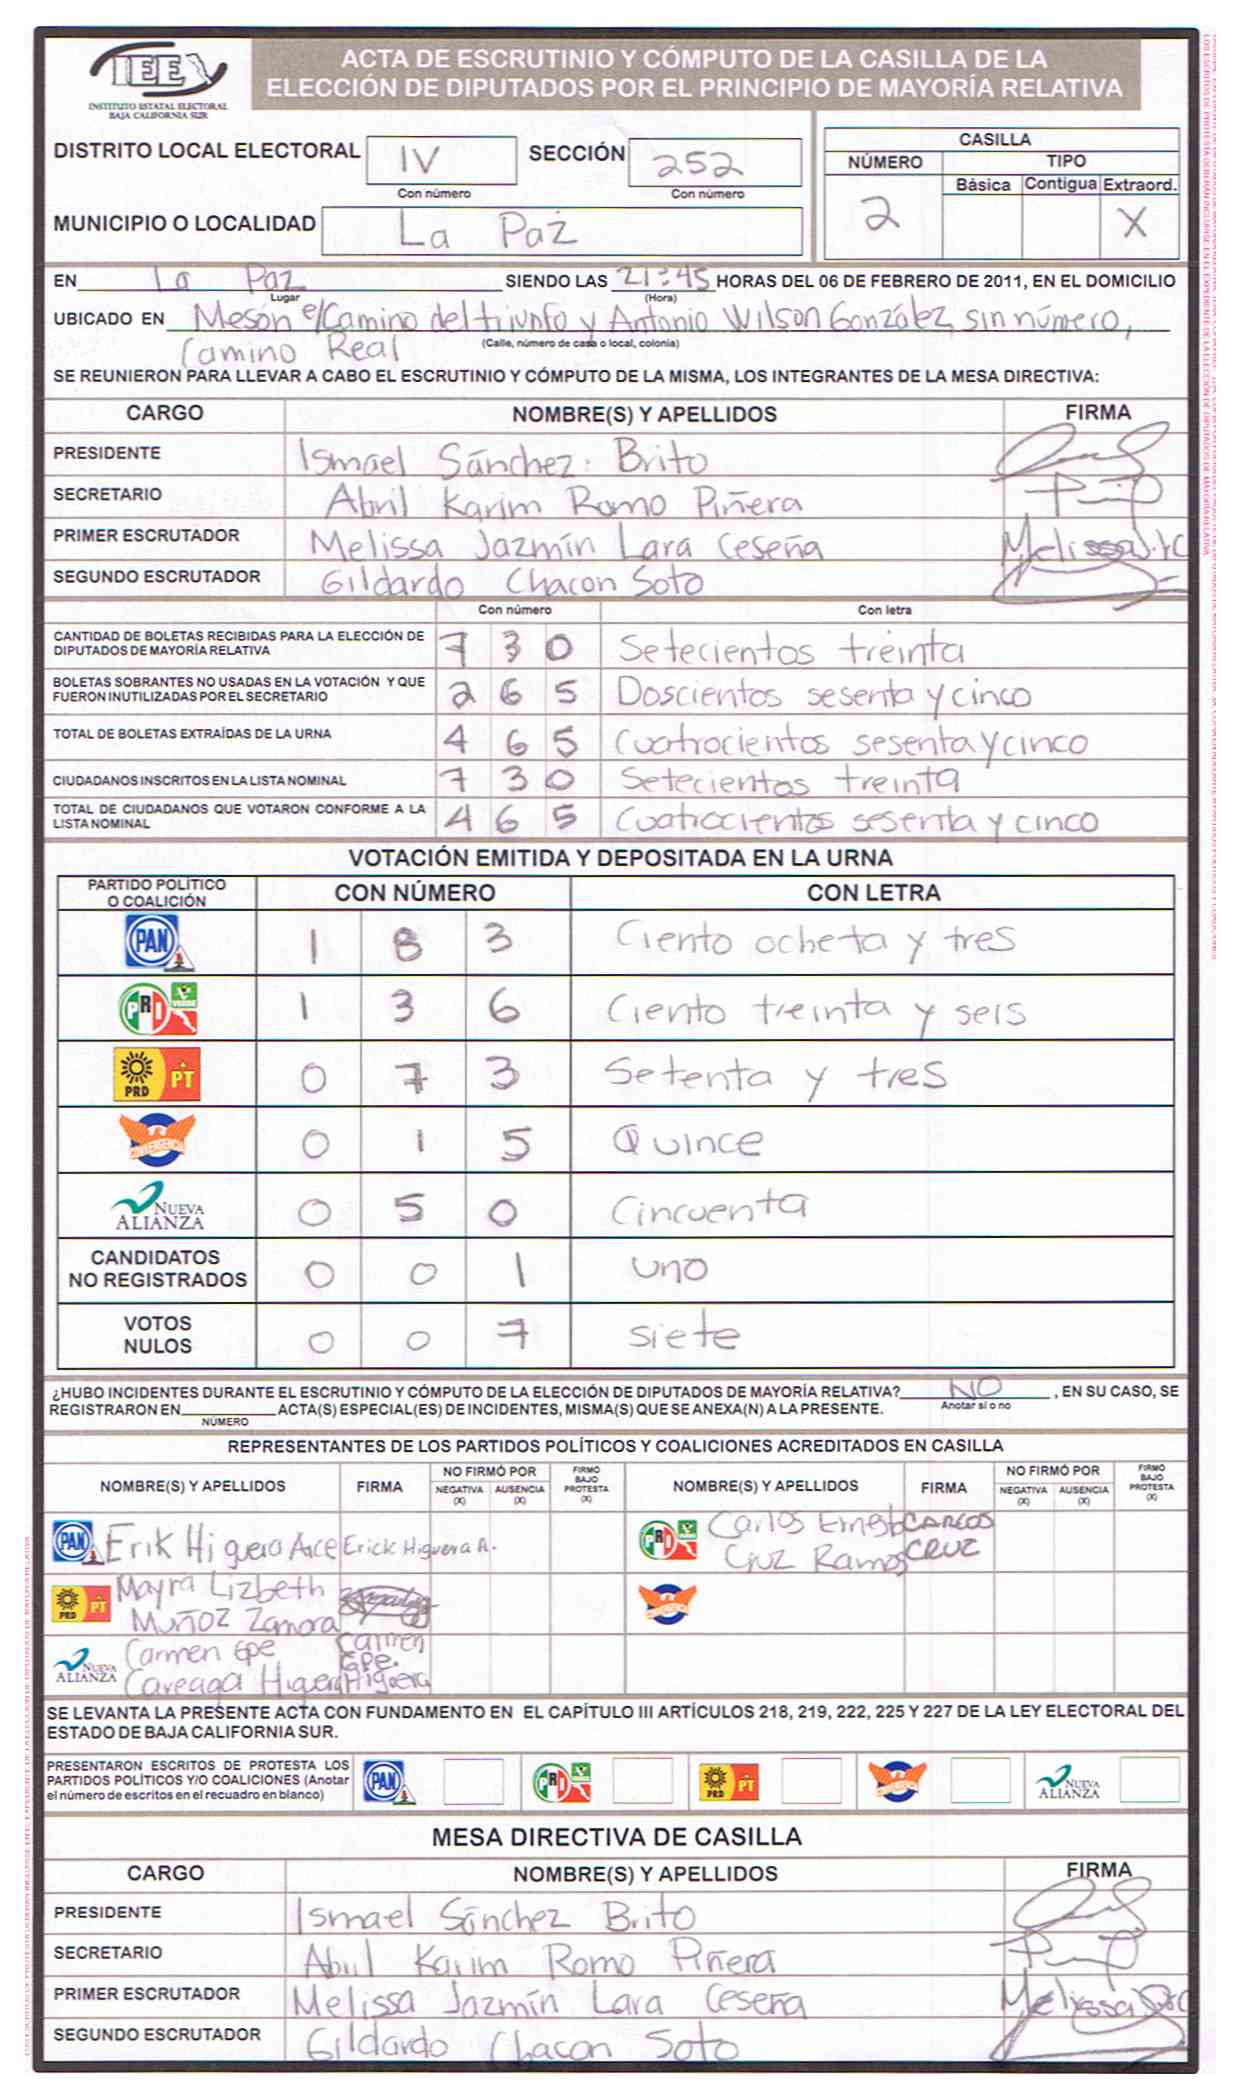 IEE
INSTITUTO ESTATAL ELECTORAL
BAJA CALIFORNIA SUR
ACTA DE ESCRUTINIO Y CÓMPUTO DE LA CASILLA DE LA
ELECCIÓN DE DIPUTADOS POR EL PRINCIPIO DE MAYORÍA RELATIVA
DISTRITO LOCAL ELECTORAL IV SECCIÓN 252
Con número Con número
MUNICIPIO O LOCALIDAD La Paz
CASILLA
NÚMERO TIPO
Básica Contigua Extraord.
2 X
EN La Paz SIENDO LAS 21:45 HORAS DEL 06 DE FEBRERO DE 2011, EN EL DOMICILIO
Lugar (Hora)
UBICADO EN Mesón e/Camino del triunfo y Antonio Wilson González, sin número,
(Calle, número de casa o local, colonia)
Camino Real
SE REUNIERON PARA LLEVAR A CABO EL ESCRUTINIO Y CÓMPUTO DE LA MISMA, LOS INTEGRANTES DE LA MESA DIRECTIVA:
CARGO NOMBRE(S) Y APELLIDOS FIRMA
PRESIDENTE Ismael Sánchez Brito
SECRETARIO Abril Karim Romo Piñera
PRIMER ESCRUTADOR Melissa Jazmín Lara Ceseña
SEGUNDO ESCRUTADOR Gildardo Chacon Soto
Con número Con letra
CANTIDAD DE BOLETAS RECIBIDAS PARA LA ELECCIÓN DE
DIPUTADOS DE MAYORÍA RELATIVA 7 3 0 Setecientos treinta
BOLETAS SOBRANTES NO USADAS EN LA VOTACIÓN Y QUE
FUERON INUTILIZADAS POR EL SECRETARIO 2 6 5 Doscientos sesenta y cinco
TOTAL DE BOLETAS EXTRAÍDAS DE LA URNA 4 6 5 Cuatrocientos sesenta y cinco
CIUDADANOS INSCRITOS EN LA LISTA NOMINAL 7 3 0 Setecientos treinta
TOTAL DE CIUDADANOS QUE VOTARON CONFORME A LA
LISTA NOMINAL 4 6 5 Cuatrocientos sesenta y cinco
VOTACIÓN EMITIDA Y DEPOSITADA EN LA URNA
PARTIDO POLÍTICO
O COALICIÓN CON NÚMERO CON LETRA
PAN 1 8 3 Ciento ocheta y tres
PRI VERDE 1 3 6 Ciento treinta y seis
PRD PT 0 7 3 Setenta y tres
CONVERGENCIA 0 1 5 Quince
NUEVA
ALIANZA 0 5 0 Cincuenta
CANDIDATOS
NO REGISTRADOS 0 0 1 uno
VOTOS
NULOS 0 0 7 siete
¿HUBO INCIDENTES DURANTE EL ESCRUTINIO Y CÓMPUTO DE LA ELECCIÓN DE DIPUTADOS DE MAYORÍA RELATIVA? NO , EN SU CASO, SE
Anotar sí o no
REGISTRARON EN ACTA(S) ESPECIAL(ES) DE INCIDENTES, MISMA(S) QUE SE ANEXA(N) A LA PRESENTE.
NÚMERO
REPRESENTANTES DE LOS PARTIDOS POLÍTICOS Y COALICIONES ACREDITADOS EN CASILLA
NOMBRE(S) Y APELLIDOS FIRMA NO FIRMÓ POR NEGATIVA (X) AUSENCIA (X) FIRMÓ BAJO PROTESTA (X) NOMBRE(S) Y APELLIDOS FIRMA NO FIRMÓ POR NEGATIVA (X) AUSENCIA (X) FIRMÓ BAJO PROTESTA (X)
PAN Erik Higuera Arce Erick Higuera A.
PRI VERDE Carlos Ernesto CARLOS
Cruz Ramos CRUZ
PRD PT Mayra Lizbeth
Muñoz Zamora
CONVERGENCIA
NUEVA ALIANZA Carmen Gpe Carmen
Gpe.
Careaga Higuera Higuera
SE LEVANTA LA PRESENTE ACTA CON FUNDAMENTO EN EL CAPÍTULO III ARTÍCULOS 218, 219, 222, 225 Y 227 DE LA LEY ELECTORAL DEL
ESTADO DE BAJA CALIFORNIA SUR.
PRESENTARON ESCRITOS DE PROTESTA LOS
PARTIDOS POLÍTICOS Y/O COALICIONES (Anotar
el número de escritos en el recuadro en blanco)
PAN PRI VERDE PRD PT CONVERGENCIA NUEVA ALIANZA
MESA DIRECTIVA DE CASILLA
CARGO NOMBRE(S) Y APELLIDOS FIRMA
PRESIDENTE Ismael Sánchez Brito
SECRETARIO Abril Karim Romo Piñera
PRIMER ESCRUTADOR Melissa Jazmín Lara Ceseña
SEGUNDO ESCRUTADOR Gildardo Chacon Soto